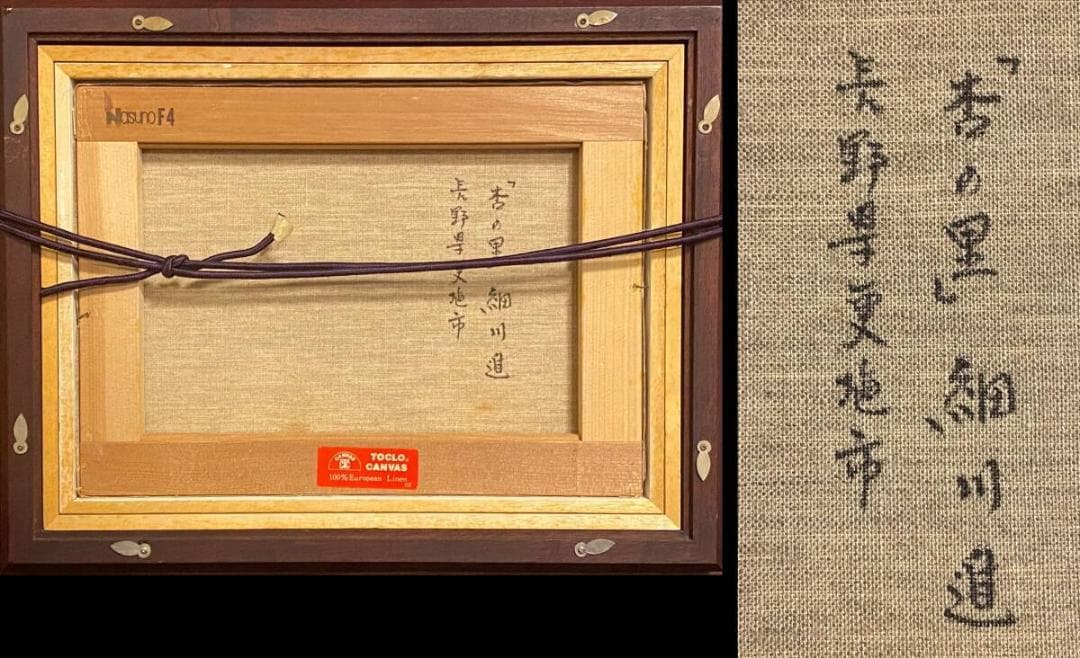 Nasuno F4
「杏の里」 細川 進
長野県更埴市
TOCLO
CANVAS
100% European Linen
「杏の里」 細川 進
長野県更埴市